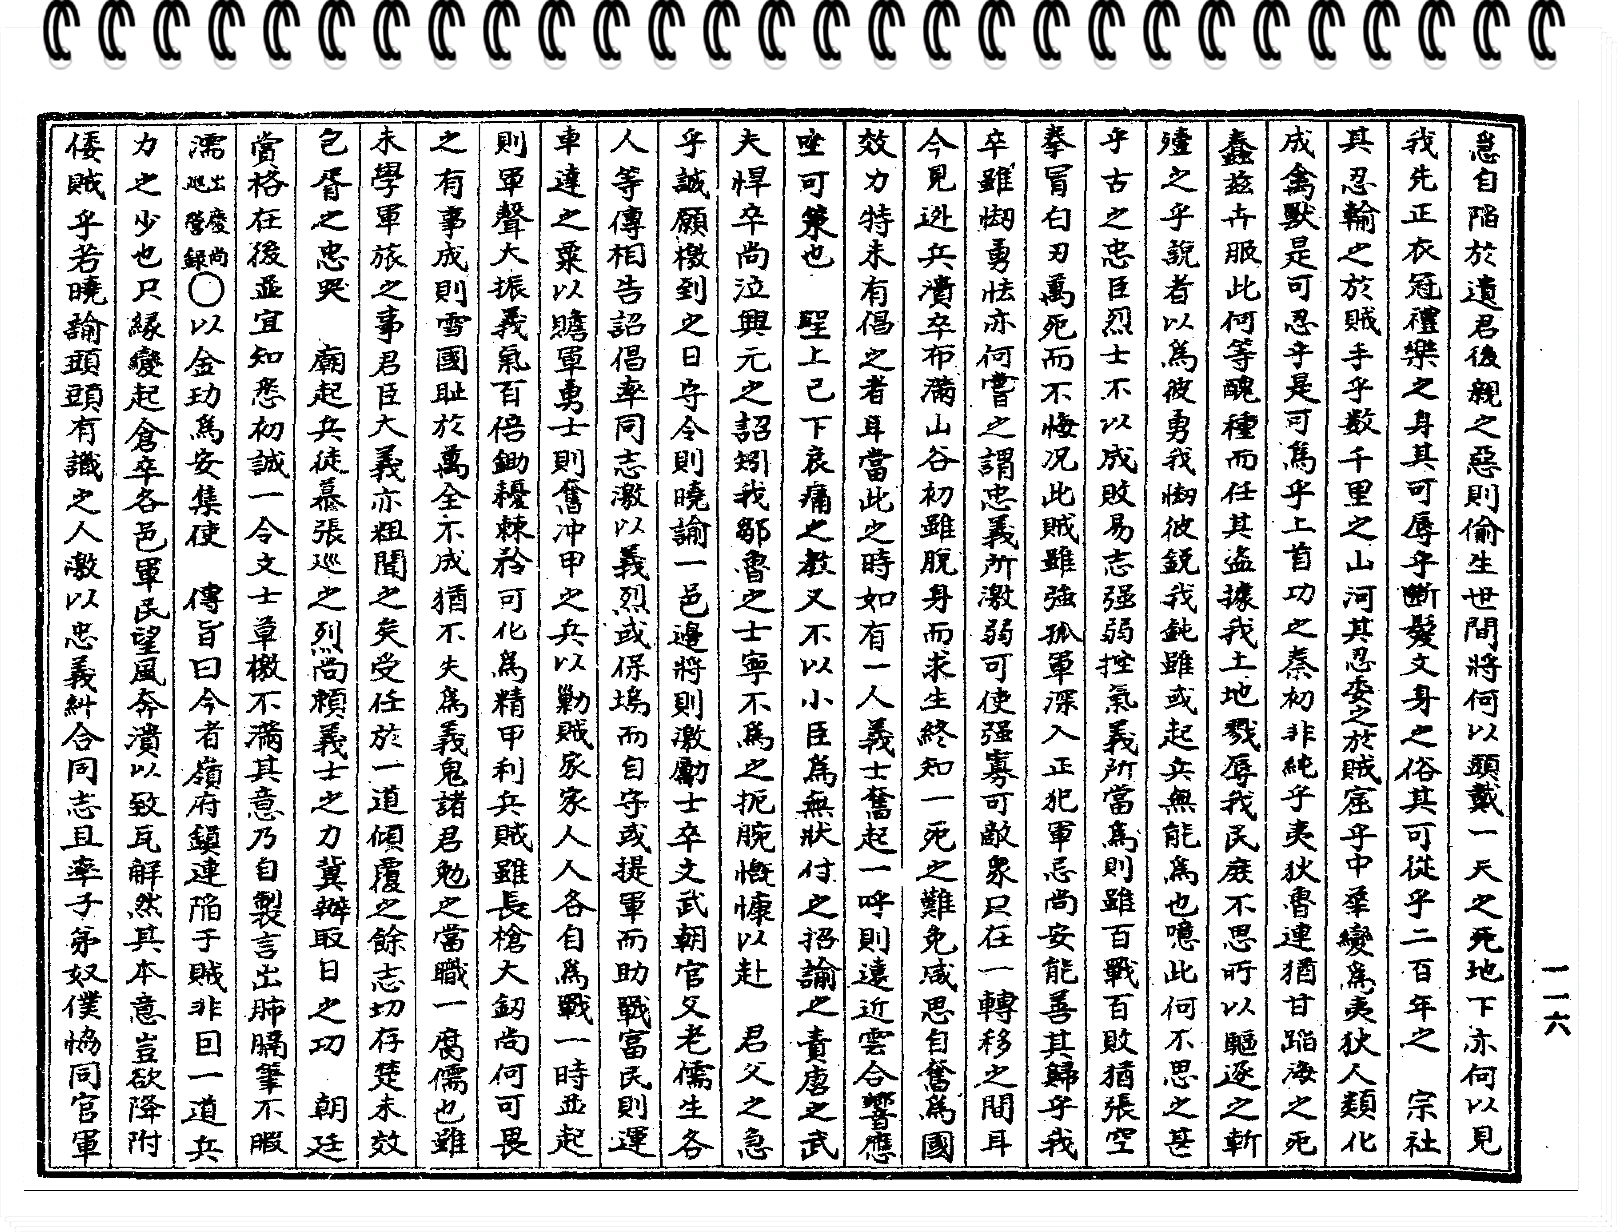 急自陷於遺君後親之惡則偷生世間將何以頭戴一天之死地下亦何以見
我先正衣冠禮樂之身其可辱乎斷髮文身之俗其可從乎二百年之 宗社
其忍輸之於賊手乎數千里之山河其忍委之於賊窟乎中華變爲夷狄人類化
成禽獸是可忍乎是可爲乎上首功之秦初非純乎夷狄魯連猶甘蹈海之死
蠢玆卉服此何等醜種而任其盜據我土地戮辱我民庶不思所以驅逐之斬
殪之乎說者以爲彼勇我怯彼銳我鈍雖或起兵無能爲也噫此何不思之甚
乎古之忠臣烈士不以成敗易志强弱挫氣義所當爲則雖百戰百敗猶張空
拳冒白刃萬死而不悔况此賊雖强孤軍深入正犯軍忌尚安能善其歸乎我
卒雖㤼勇怯亦何嘗之謂忠義所激弱可使强寡可敵衆只在一轉移之間耳
今見逃兵潰卒布滿山谷初雖脫身而求生終知一死之難免咸思自奮爲國
效力特未有倡之者耳當此之時如有一人義士奮起一呼則遠近雲合響應
坐可策也 聖上已下哀痛之敎又不以小臣爲無狀付之招諭之責唐之武
夫悍卒尚泣興元之詔矧我鄒魯之士寧不爲之扼腕慨慷以赴 君父之急
乎誠願檄到之日守令則曉諭一邑邊將則激勵士卒文武朝官父老儒生各
人等傳相告詔倡率同志激以義烈或保塢而自守或提軍而助戰富民則運
車達之粟以贍軍勇士則奮冲甲之兵以勦賊家家人人各自爲戰一時並起
則軍聲大振義氣百倍鋤耰棘矜可化爲精甲利兵賊雖長槍大釰尚何可畏
之有事成則雪國恥於萬全不成猶不失爲義鬼諸君勉之當職一腐儒也雖
未學軍旅之事君臣大義亦粗聞之矣受任於一道傾覆之餘志切存楚未效
包胥之忠哭 廟起兵徒慕張巡之烈尚賴義士之力冀辦取日之功 朝廷
賞格在後並宜知悉初誠一令文士草檄不滿其意乃自製言出肺膈筆不暇
濡出慶尚巡營錄○以金玏爲安集使 傳旨曰今者嶺府鎭連陷于賊非囙一道兵
力之少也只緣變起倉卒各邑軍民望風奔潰以致瓦解然其本意豈欲降附
倭賊乎若曉諭頭頭有識之人激以忠義糾合同志且率子弟奴僕協同官軍
一一六